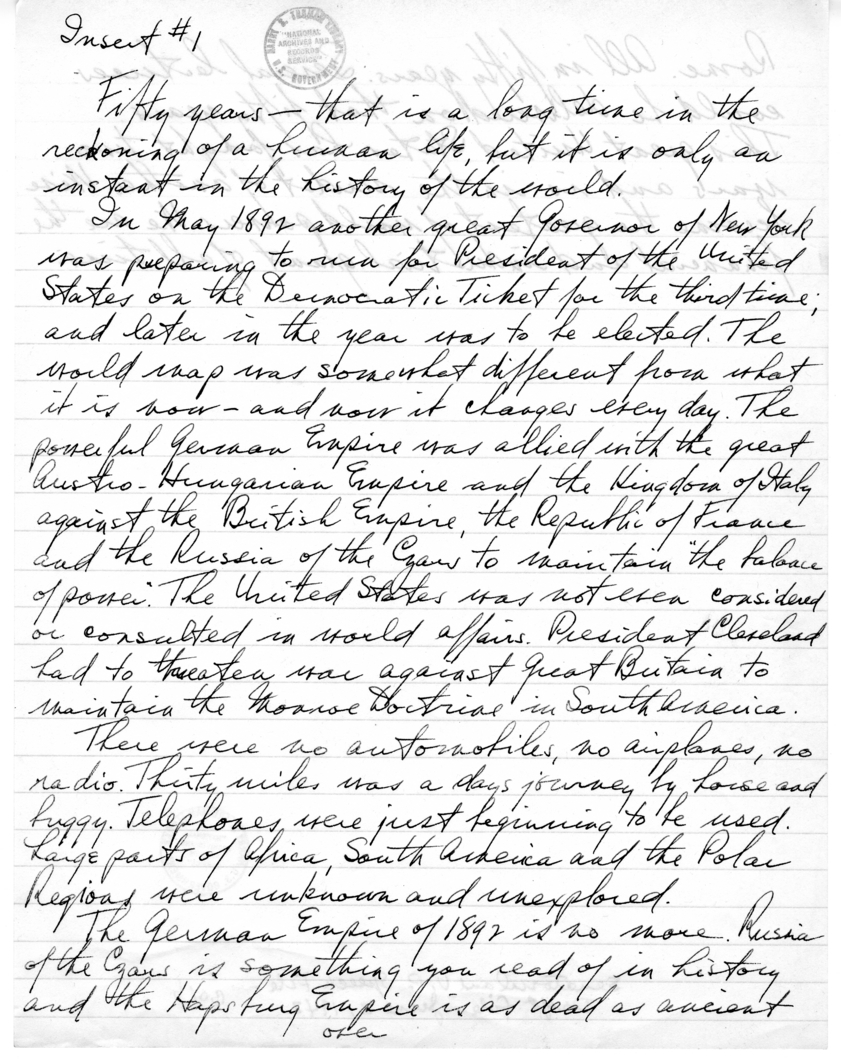 Insert #1
HARRY S. TRUMAN LIBRARY
"NATIONAL
ARCHIVES AND
RECORDS
SERVICE"
U.S. GOVERNMENT
Fifty years – that is a long time in the
reckoning of a human life, but it is only an
instant in the history of the world.
In May 1892 another great Governor of New York
was preparing to run for President of the United
States on the Democratic Ticket for the third time;
and later in the year was to be elected. The
world map was somewhat different from what
it is now – and now it changes every day. The
powerful German Empire was allied with the great
Austro-Hungarian Empire and the Kingdom of Italy
against the British Empire, the Republic of France
and the Russia of the Czars to maintain "the balance
of power". The United States was not even considered
or consulted in world affairs. President Cleveland
had to threaten war against Great Britain to
maintain the Monroe Doctrine in South America.
There were no automobiles, no airplanes, no
radio. Thirty miles was a days journey by horse and
buggy. Telephones were just beginning to be used.
Large parts of Africa, South America and the Polar
Regions were unknown and unexplored.
The German Empire of 1892 is no more. Russia
of the Czars is something you read of in history
and the Hapsburg Empire is as dead as ancient
over